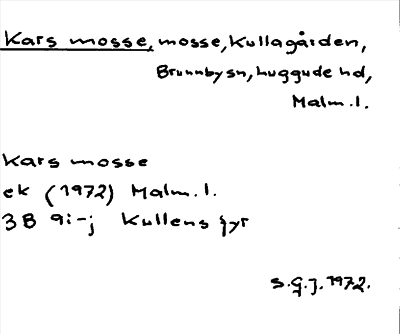 Kars mosse, mosse, Kullagården,
Brunnby sn, Luggude hd,
Malm. l.
Kars mosse
ek (1972) Malm. l.
3B 9i-j Kullens fyr
S.G.J. 1972.